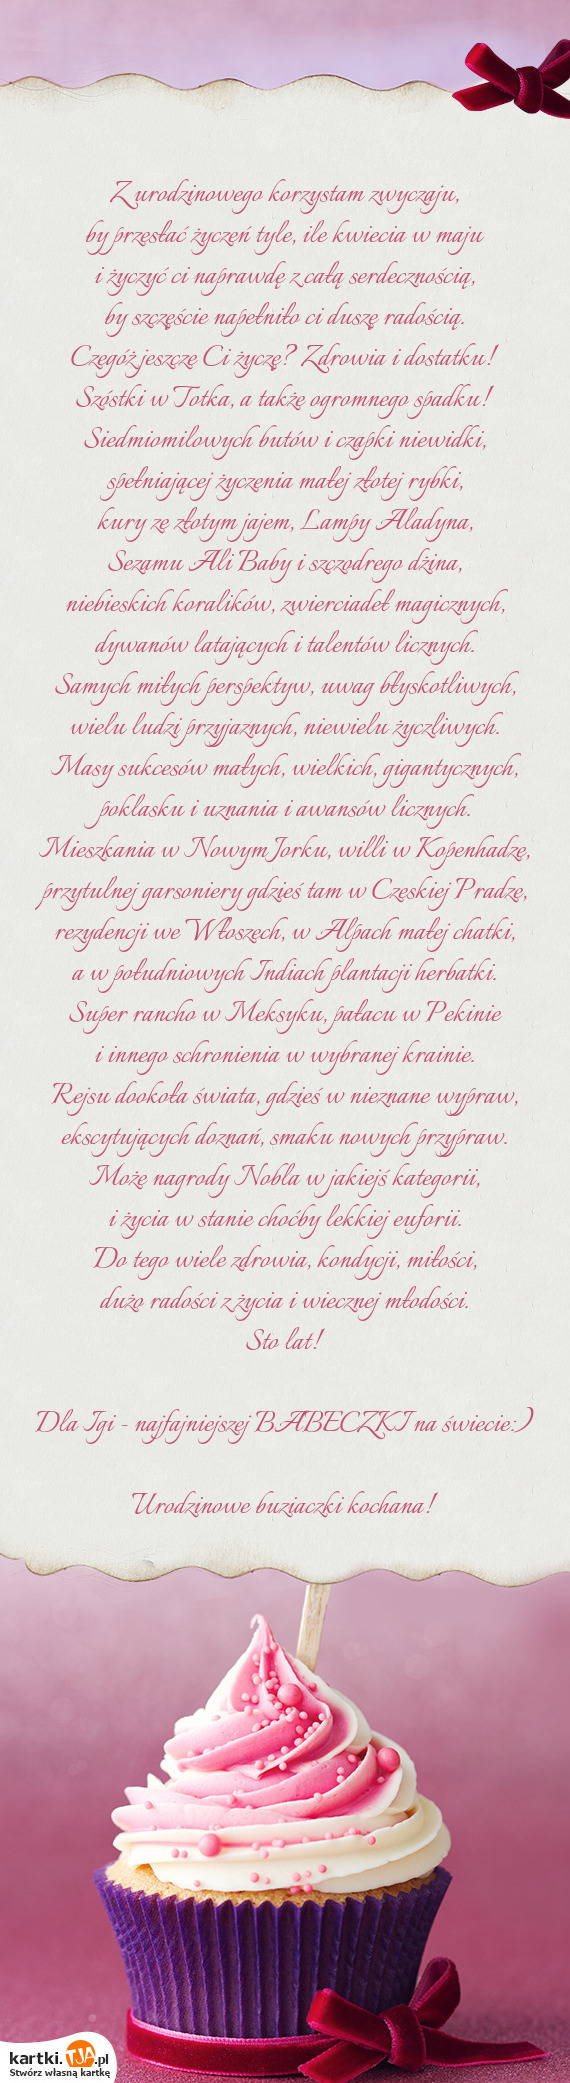 Z urodzinowego korzystam zwyczaju,
by przesłać życzeń tyle, ile kwiecia w maju
i życzyć ci naprawdę z całą serdecznością,
by szczęście napełniło ci duszę radością.
Czegóż jeszcze Ci życzę? Zdrowia i dostatku!
Szóstki w Totka, a także ogromnego spadku!
Siedmiomilowych butów i czapki niewidki,
spełniającej życzenia małej złotej rybki,
kury ze złotym jajem, Lampy Aladyna,
Sezamu Ali Baby i szczodrego dżina,
niebieskich koralików, zwierciadeł magicznych,
dywanów latających i talentów licznych.
Samych miłych perspektyw, uwag błyskotliwych,
wielu ludzi przyjaznych, niewielu życzliwych.
Masy sukcesów małych, wielkich, gigantycznych,
poklasku i uznania i awansów licznych.
Mieszkania w Nowym Jorku, willi w Kopenhadze,
przytulnej garsoniery gdzieś tam w Czeskiej Pradze,
rezydencji we Włoszech, w Alpach małej chatki,
a w południowych Indiach plantacji herbatki.
Super rancho w Meksyku, pałacu w Pekinie
i innego schronienia w wybranej krainie.
Rejsu dookoła świata, gdzieś w nieznane wypraw,
ekscytujących doznań, smaku nowych przypraw.
Może nagrody Nobla w jakiejś kategorii,
i życia w stanie choćby lekkiej euforii.
Do tego wiele zdrowia, kondycji, miłości,
dużo radości z życia i wiecznej młodości.
Sto lat!
Dla Igi - najfajniejszej BABECZKI na świecie:)
Urodzinowe buziaczki kochana!
kartki.TJA.pl
Stwórz własną kartkę